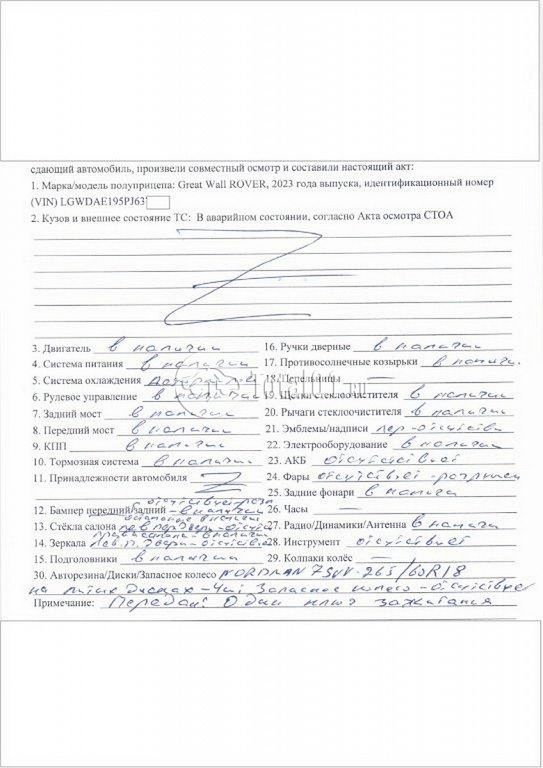 сдающий автомобиль, произвели совместный осмотр и составили настоящий акт:
1. Марка/модель полуприцепа: Great Wall ROVER, 2023 года выпуска, идентификационный номер
(VIN) LGWDAE195PJ63
2. Кузов и внешнее состояние ТС: В аварийном состоянии, согласно Акта осмотра СТОА
3. Двигатель в наличии 16. Ручки дверные в наличии
4. Система питания в наличии 17. Противосолнечные козырьки в наличии
5. Система охлаждения 18. Пепельницы
6. Рулевое управление в наличии 19. Щетки стеклоочистителя в наличии
7. Задний мост в наличии 20. Рычаги стеклоочистителя в наличии
8. Передний мост в наличии 21. Эмблемы/надписи пер-отсутств
9. КПП в наличии 22. Электрооборудование в наличии
10. Тормозная система в наличии 23. АКБ отсутствует
11. Принадлежности автомобиля 24. Фары отсутствует
25. Задние фонари в наличии
12. Бампер передний/задний - в наличии 26. Часы —
13. Стёкла салона 27. Радио/Динамики/Антенна в наличии
14. Зеркала 28. Инструмент отсутствует
15. Подголовники в наличии 29. Колпаки колёс —
30. Авторезина/Диски/Запасное колесо NORDMAN 7 SUV - 265/60R18
на литых дисках - 4ш; Запасное колесо - отсутствует
Примечание: Передан: Один ключ зажигания
total01.ru